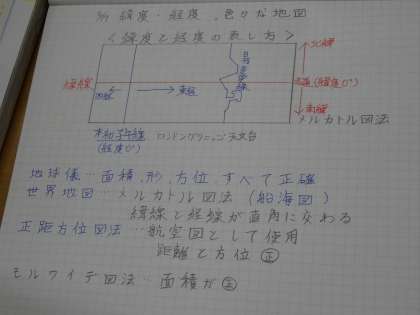 緯度・経度、色々な地図
<緯度と経度の表し方>
北緯
日付変更線
緯線
赤道(緯度0°)
西経
東経
南緯
メルカトル図法
本初子午線
(経度0°)
ロンドングリニッジ天文台
地球儀…面積、形、方位、すべて正確
世界地図…メルカトル図法(船海図)
緯線と経線が直角に交わる
正距方位図法…航空図として使用
距離と方位正
モルワイデ図法…面積が正